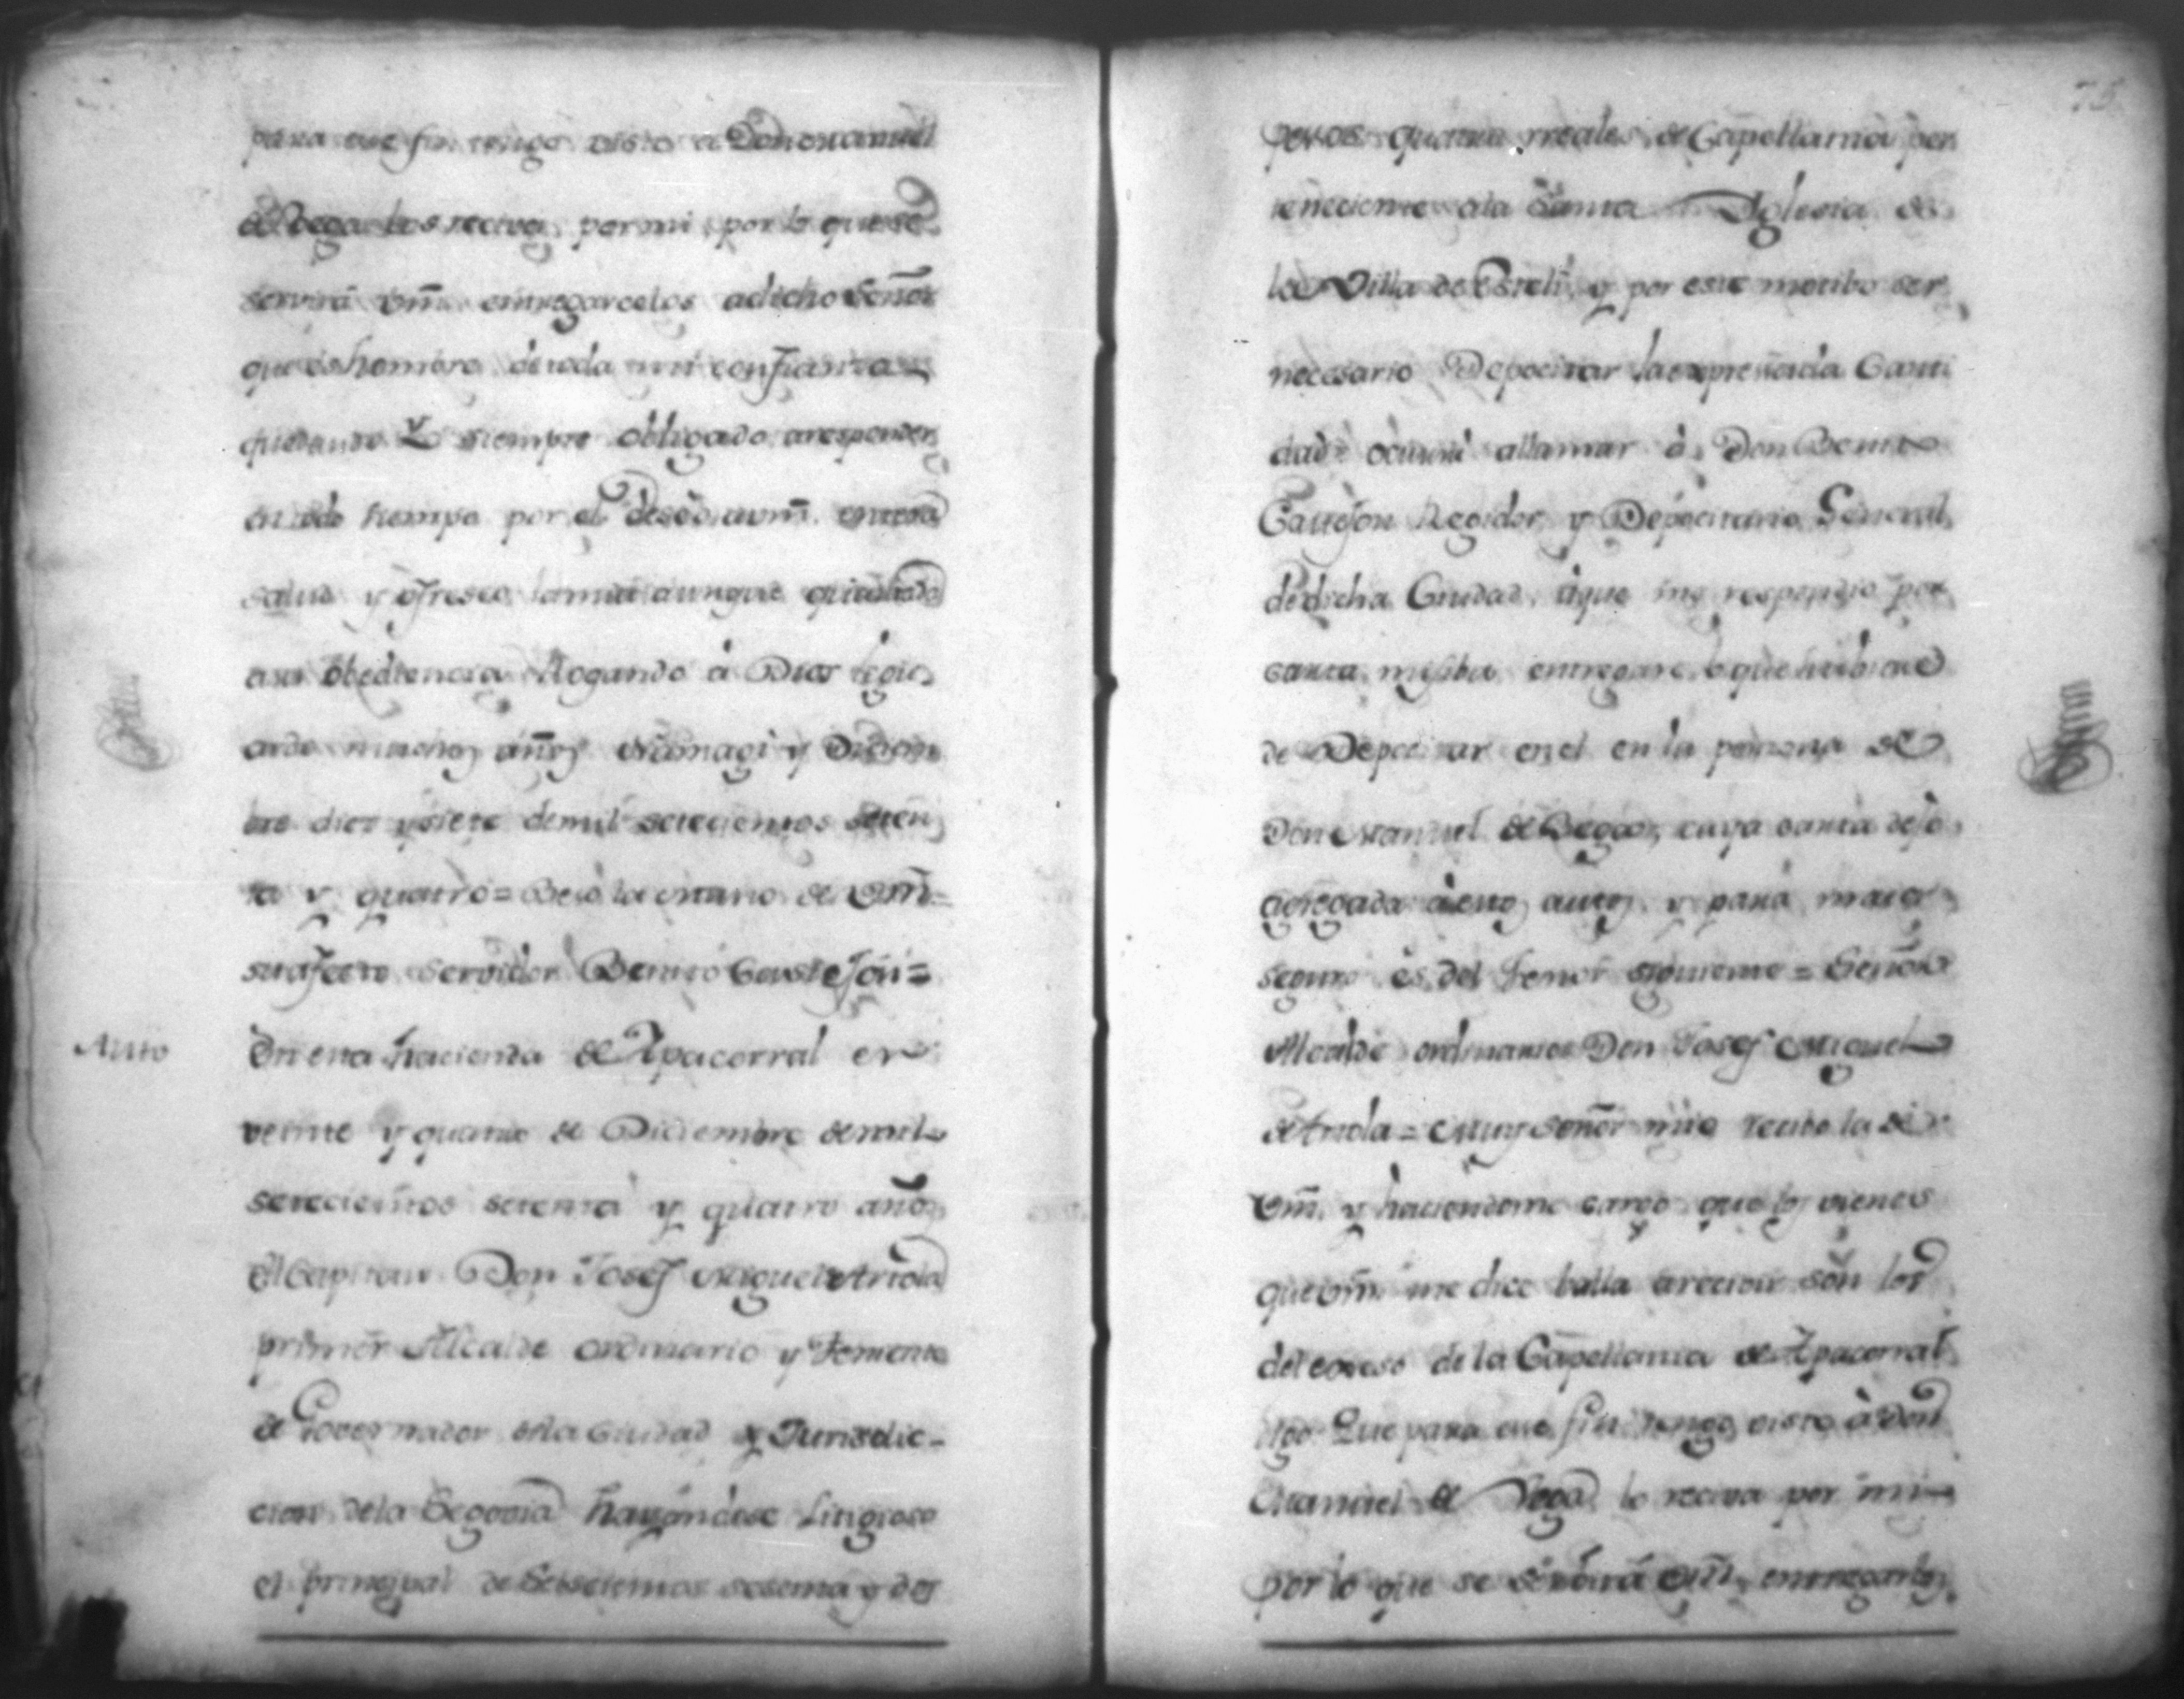 para ese fin tengo visto a Don Manuel
de Vega los reciva por mi, por lo que se
servirá Vm̃. entregarcelos a dicho Señor
que es hombre de toda mi confianza =
quedando Yo siempre obligado a responder
en todo tiempo por el deseo a vm̃. entera
salud y ofresco la mia aunque quebrada
a su obediencia Rogando á Dios le gu
arde muchos años Diciem
bre diez y siete de mil setecientos seten
ta y quatro = Beso la mano de Vm̃ =
su afecto servidor Benito Castejon =
Auto
En esta hacienda de Apacorral en
veinte y quatro de Diciembre de mil
setecientos setenta y quatro años
El Capitan Don Josef Miguel Arriola
primer Alcalde ordinario y Teniente
de Governador de la Ciudad y Jurisdic-
cion de la Segovia hayandose Litigioso
el principal de Seiscientos sesenta y dos
75
pesos quatro rreales de Capellania per
teneciente a la Santa Yglesia de
la Villa de Estelí, y por este motibo ser
necesario Depocitar la expresada Canti
dad ocurrí a llamar á Don Benito
Castejon Regidor y Depocitario General
de dicha Ciudad, que me respondio por
carta misiba entregare lo que hubiese
de Depocitar en el en la persona de
Don Manuel de Vega, cuya carta dejo
agregada á estos autos y para mayor
seguro es del tenor siguiente = Señor
Alcalde ordinario Don Josef Miguel
de Arriola = Muy Señor mio recibo la de
Vm̃. y haciendome cargo que los vienes
que vm̃. me dice balla a recivir son los
del de la Capellania de Apacorral
digo Que para ese fin tengo visto á Don
Manuel de Vega lo reciva por mi
por lo que se servirá Vm̃. entregarlos